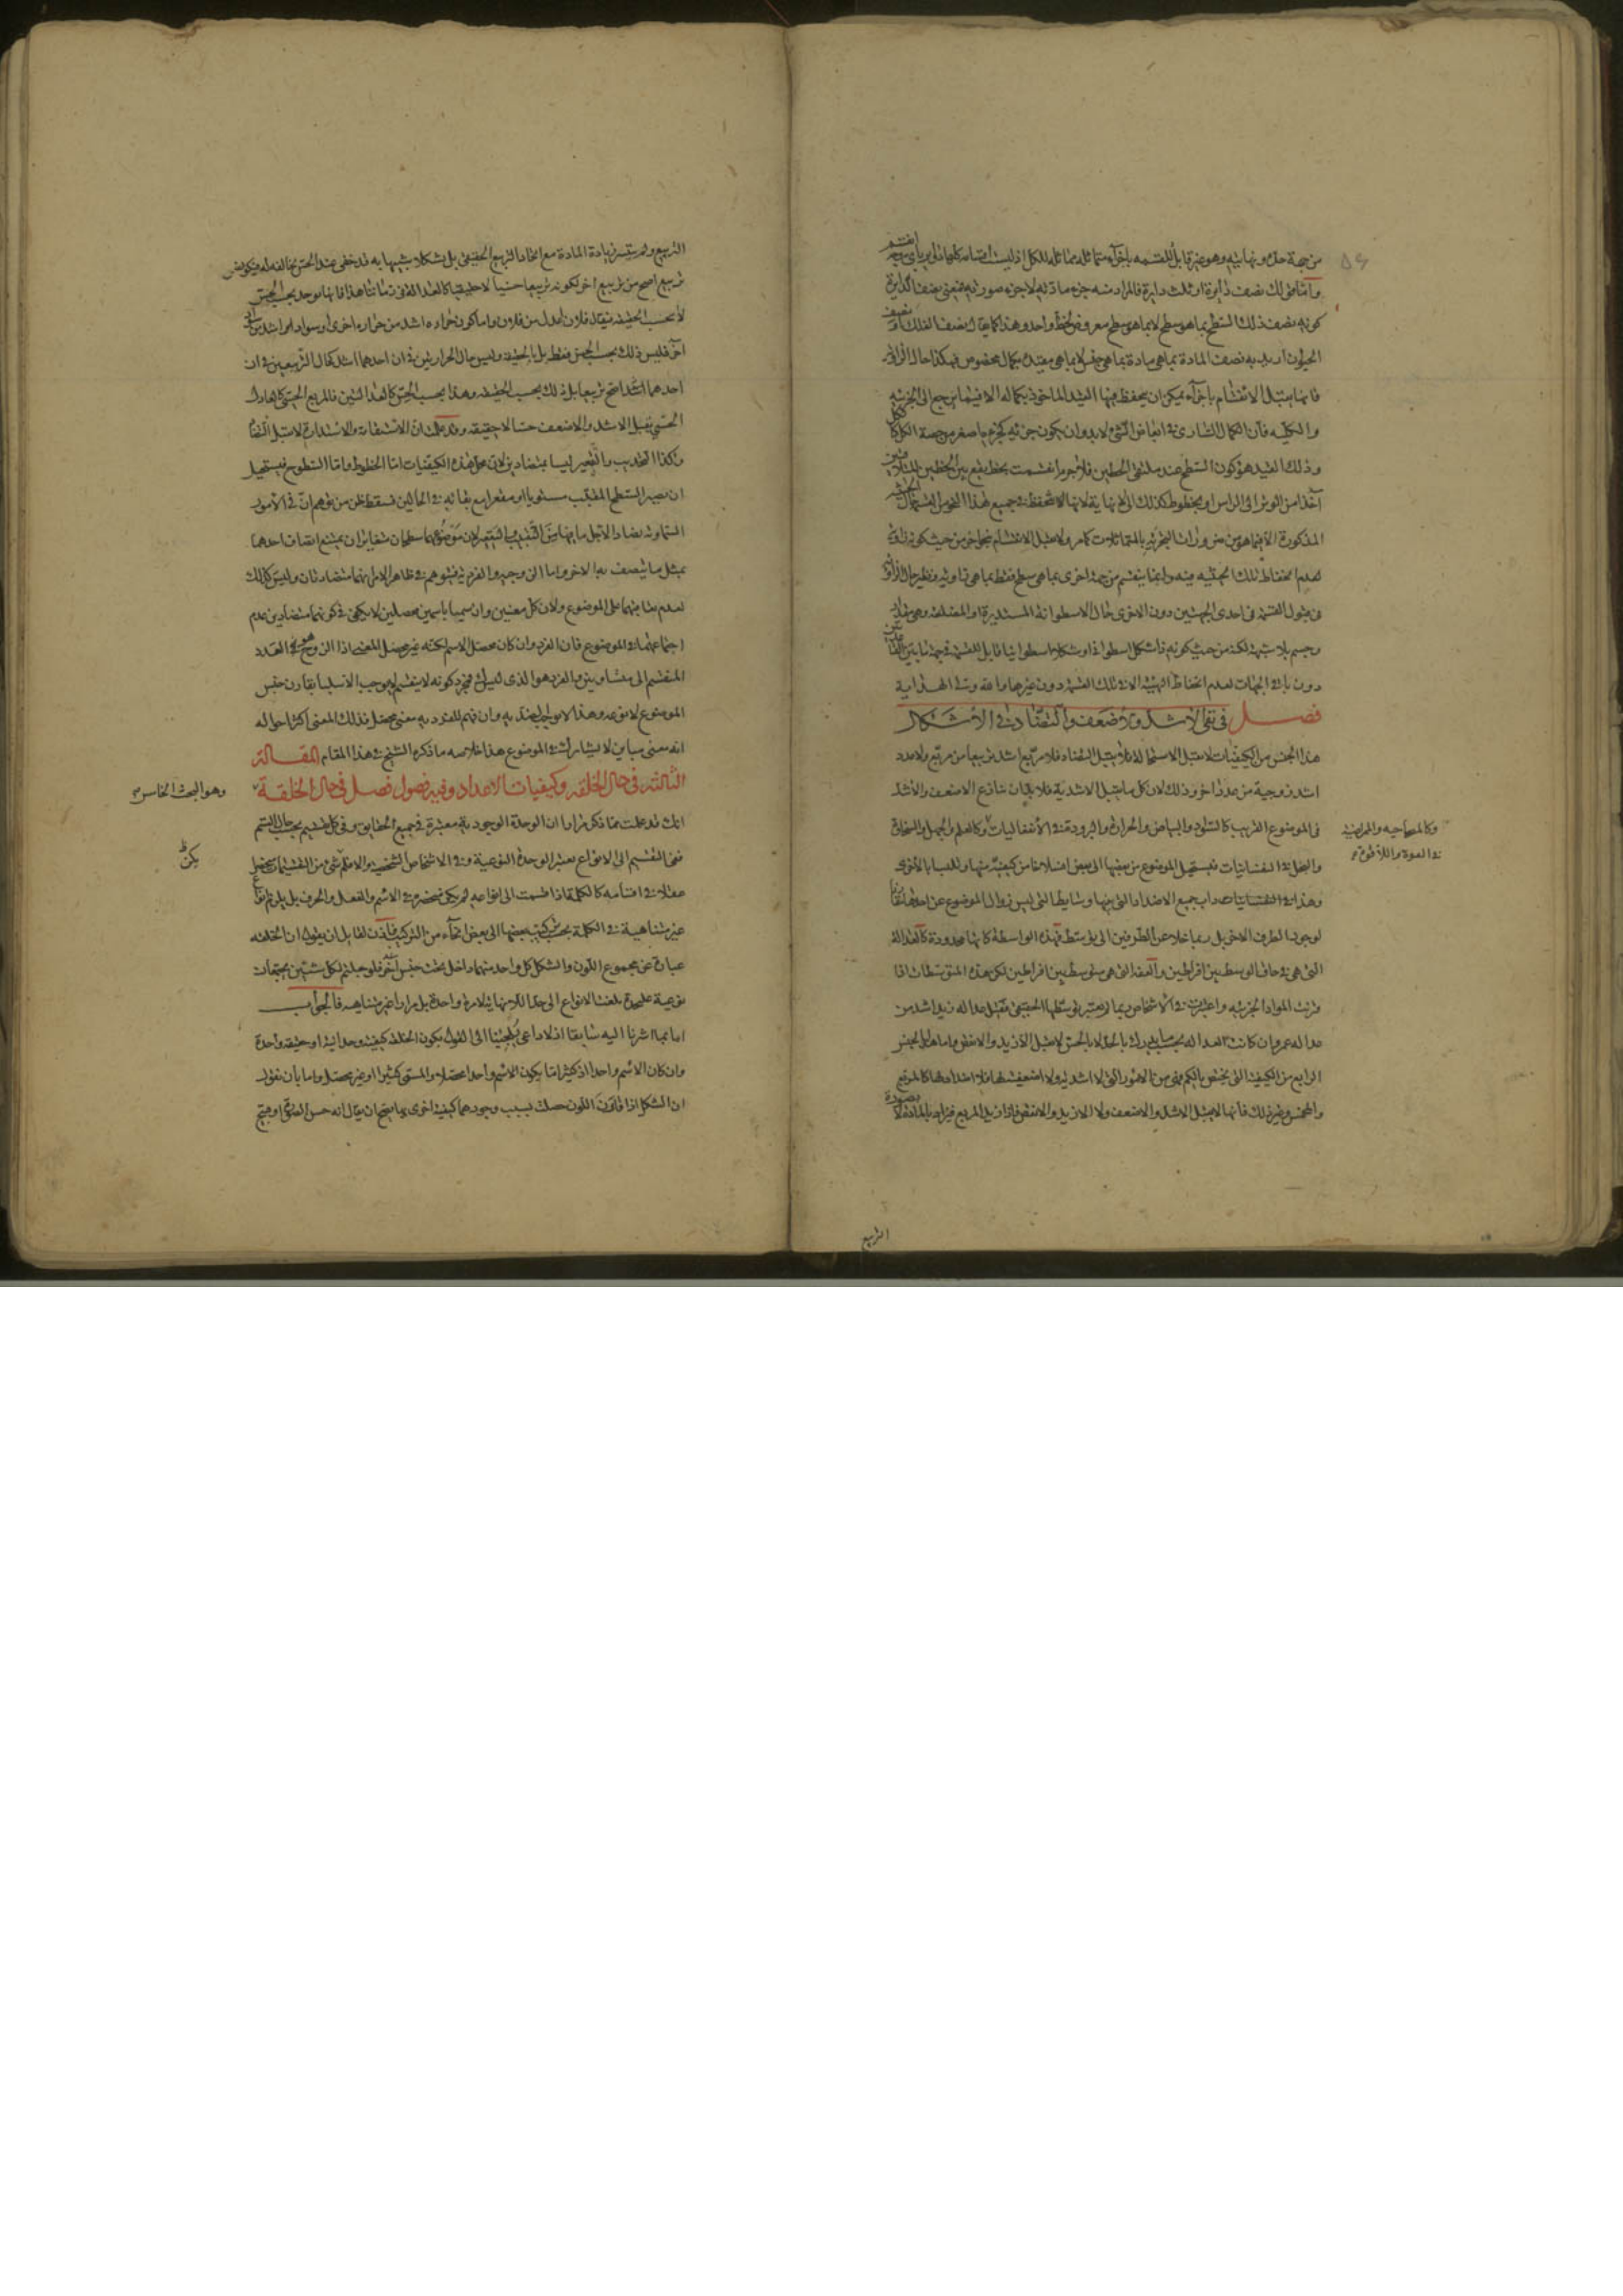 من جهة حده ونهايته وهو غير قابل للقسمة باجزآء متماثلة مماثلة للكل اذ ليست اقسامه كلها زاوية باى وجه انقسم
واما قولك نصف دآيرة او ثلث دايرة فالمراد منه جزء مادته لا جزء صورته فمعنى نصف الدايرة
كونه نصف ذلك السطح بما هو سطح لا بما هو سطح معروض لخط واحد وهذا كما يقال نصف الفلك او نصف
الحيوان اريد به نصف المادة بما هى مادة بما هى جنس لا بما هى مقيدة بكمال مخصوص فهكذا حال الزاوية
فانها يقبل الانقسام باجزآء يمكن ان يحفظ فيها القيد الماخوذ بكماله الا فيما يرجع الى الجزئية
والكلية فان الكمال السارى فى ابعاض الشىء لابد وان يكون جزئه كجزء ما صغر من حصة الكل ككل
وذلك القيد هو كون السطح عند ملتقى الخطين فلا جرم انقسمت بخط يقع بين الخطين المتلاقيين
آخذا من الوتر الى الراس او بخطوط كذلك الى لا نهاية لانها لانحفظ فى جميع هذا النحو من القسمة الحيثية
المذكورة الا فيما هو من ضرورات التجزية بالمتماثلات كما مر ولا يقبل الانقسام بنحو اخر من حيث كونه زاوية
لعدم انحفاظ تلك الحيثية فيه وانما ينقسم من جهة اخرى بما هى سطح فقط بما هى زاوية ونظير حال الزاوية
فى قبول القسمة فى احدى الجهتين دون الاخرى حال الاسطوانة المستديرة او المضلعة وهى مقدار
وجسم بلا شبهة لكنه من حيث كونه ذا شكل اسطوانة او شكلا اسطوانيا قابل للقسمة فى جهة ما بين القاعدتين
دون باقى الجهات لعدم انحفاظ الهيئة الا فى تلك القسمة دون غيرها والله ولى الهداية
فصل فى نفى الاشد والاضعف والتضاد فى الاشكال
هذا الجنس من الكيفيات لا يقبل الاستحالة فلا يقبل التضاد فلا مربع اشد تربيعا من مربع ولا عدد
اشد زوجية من عدد اخر وذلك لان كل ما يقبل الاشدية فلا بد ان تنازع الاضعف والاشد
فى الموضوع القريب كالسواد والبياض والحرارة والبرودة فى الانفعاليات وكالعلم والجهل والسخاوة
والبخل فى النفسانيات فيستحيل الموضوع من بعضها الى بعض انسلاخا من كيفية منها وتلبسا بالاخرى
وهذا فى النفسانيات
لوجود الطرف الاخر بل ربما خلا عن الطرفين الى المتوسط فهذه الواسطة كانها محدودة كالعدالة
التى هى فى حاق الوسط بين افراطين والعفة التى هى متوسط بين افراطين لكن هذه المتوسطات اذا
قرنت المواد الجزئية واعتبرت فى الاشخاص ربما لم يعتبر توسطها الحقيقى فقيل عدالة زيد اشد من
عدالة عمرو وان كانت العدالة بحسب ما يدرك بالحد لا بالحس لا يقبل الازيد والانقص واما هذا الجنس
الرابع من الكيفية التى يختص بالكم فهى من الامور التى لا اشدية ولا اضعفية لها فلا اشد فيها كالمربع
والمخمس وغير ذلك فانها لا يقبل الاشد والاضعف ولا الازيد والانقص فاذا زيد المربع فيزاد بالمادة لا بصورة
وكالمصحاحية والممراضية
فى القوة واللاقوة
التربيع
التربيع ولم يتيسر زيادة المادة مع اتخاذ التربيع الحقيقى بل تشكلا شبيها به قد خفى عند الحس مخالفته له فيكون
تربيع اصح من تربيع اخر لكونه تربيعا حسيا لا حقيقيا كالعدالة فى زماننا هذا فانها توجد بحسب الحس
لا بحسب الحقيقة فيقال فلان اعدل من فلان واما كون حرارة اشد من حرارة اخرى او سواد امر اشد من سواد
آخر فليس ذلك بحسب الحس فقط بل بالحقيقة وليس حال الحرارتين فى ان احدهما اشد كحال التربيعين فى ان
احدهما اشد اصح تربيعا بل ذلك بحسب الحقيقة وهذا بحسب الحس كالعدالتين فالمربع الحسى كالعادل
الحسى يقبل الاشد والاضعف حسا لا حقيقة وقد علمت ان الاستقامة والاستدارة لا يقبل التضاد
وكذا التحديب والتقعير ليسا بمتضادين لان محل هذه الكيفيات اما الخطوط واما السطوح فيستحيل
ان يصير السطح المحدب مستويا او مقعرا مع بقائه فى الحالين فسقط ظن من توهم ان فى الامور
السماوية تضادا لاجل ما فيها من التحديب والتقعير لان موضوعهما سطحان متغايران يمتنع اتصاف احدهما
بمثل ما يتصف به الاخر واما الزوجية والفردية فيتوهم فى ظاهر الامر انهما متضادتان وليس كذلك
لعدم تعاقبهما على الموضوع ولان كل معنيين وان سميا باسمين محصلين لا يكفى فى كونهما متضادين عدم
اجتماعهما فى الموضوع فان الفرد وان كان محصل الاسم لكنه غير محصل المعنى اذا الزوج هو العدد
المنقسم الى متساويين والفرد هو الذى ليس فمجرد كونه لا ينقسم لا يوجب الا سلبا يقارن جنس
الموضوع لا نوعه وهذا لا يوجب الضدية وان فهم للفردية معنى محصل فذلك المعنى اكثر احواله
انه معنى مباين لا يشارك فى الموضوع هذا خلاصة ما ذكره الشيخ فى هذا المقام المقالة
الثالثة فى حال الخلقة وكيفيات الاعداد وفيه فصول فصل فى حال الخلقة
انك قد علمت مما ذكر مرارا ان الوحدة الوجودية معتبرة فى جميع الحقايق وفى كل تقسيم بحسب حال القسم
ففى التقسيم الى الانواع يعتبر الوحدة النوعية وفى الاشخاص الشخصية والا فلم شىء من التقسيمات
عقلا فى اقسامه كالكلمة اذا قسمت الى انواعه لم يكن منحصرة فى الاسم والفعل والحرف بل يلزم انواع
غير متناهية فى الكلمة بحسب تركيب بعضها الى بعض انحآء من التركيب فاذن لقايل ان يقول ان الخلقة
عبارة عن مجموع اللون والشكل كل واحد منهما داخل تحت جنس آخر فلو جعلتم لكل شيئين مجتمعان
نوعية عليحدة بلغت الانواع الى حد اللانهاية لا مرة واحدة بل مرارا غير متناهية فالجواب
اما بما اشرنا اليه سابقا اذ لا داعى يلجئنا الى القول بكون الخلقة كيفية وحدانية او حقيقة واحدة
وان كان الاسم واحدا اذ كثيرا ما يكون الاسم واحدا محصلا والمسمى كثيرا او غير محصل واما بان نقول
ان الشكل اذا قارن اللون حصلت بسبب وجودهما كيفية اخرى بها يصح ان يقال انه حسن الصورة او قبيح
وهو البحث الخامس
يكن